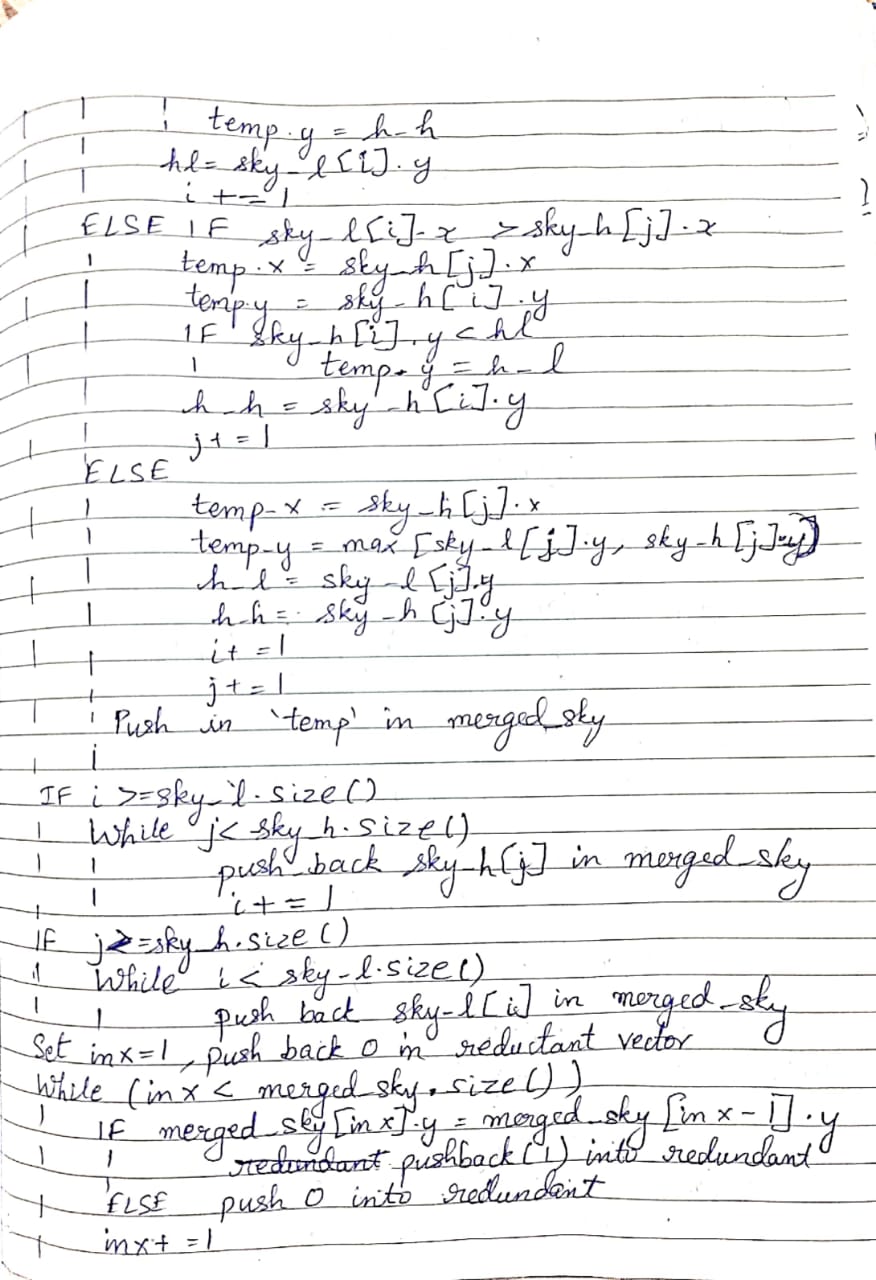 temp.y = h-h
hl = sky-l[i].y
i += 1
ELSE IF sky-l[i].x > sky-h[j].x
temp.x = sky-h[j].x
temp.y = sky-h[i].y
IF sky-h[i].y < hl
temp.y = h-l
h-h = sky-h[i].y
j+ = 1
ELSE
temp-x := sky-h[j].x
temp-y = max [sky-l[j].y, sky-h[j].y)
h-l = sky-l[j].y
h-h = sky-h[j].y
i+ = 1
j+ = 1
Push in 'temp' in merged_sky
IF i >= sky-l.size()
While j < sky_h.size()
push back sky-h[j] in merged_sky
i + = 1
IF j >= sky_h.size()
While i < sky-l.size()
push back sky-l[i] in merged_sky
Set inx=1, push back 0 in reductant vector
While (inx < merged_sky.size())
IF merged_sky[inx].y = merged_sky[inx-1].y
redundant pushback(1) into redundant
ELSE push 0 into redundant
inx+ = 1